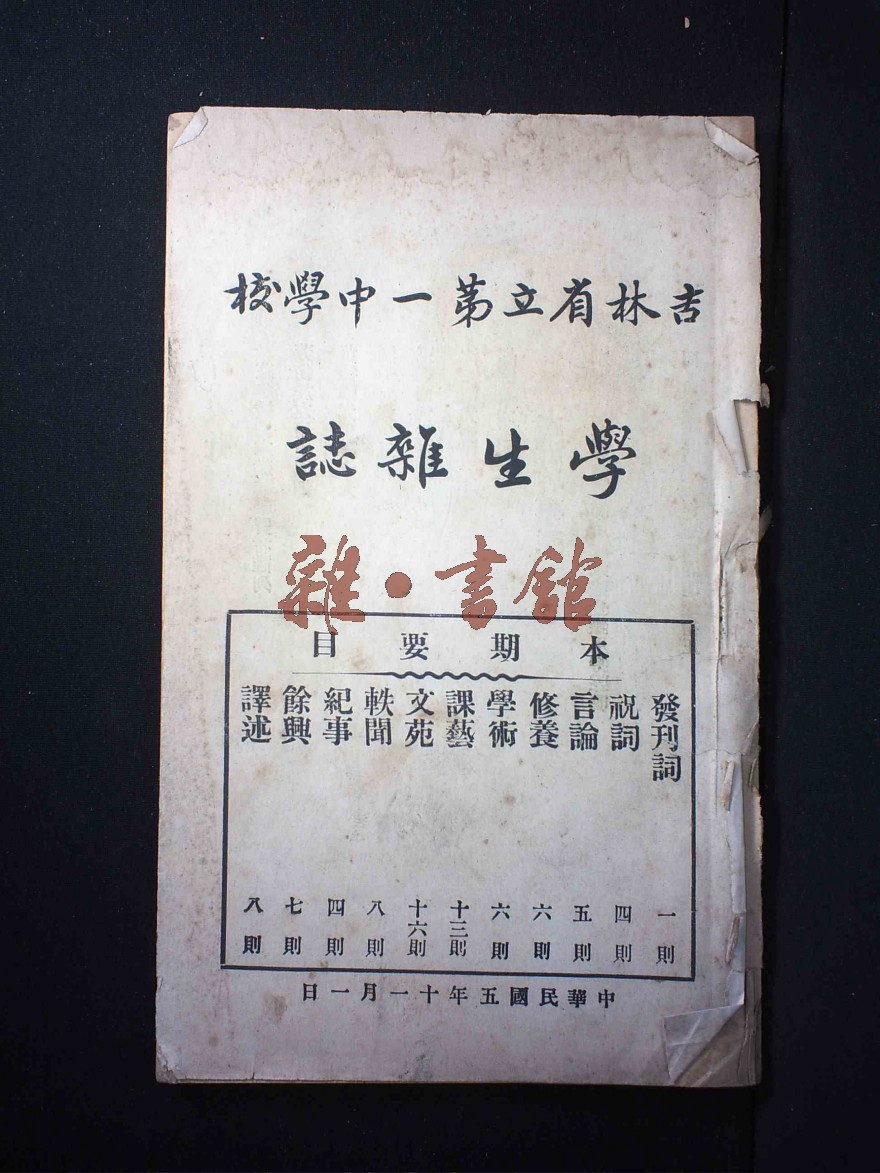 吉林省立第一中學校
學生雜誌
雜·書館
本期要目
發刊詞 一則
祝詞 四則
言論 五則
修養 六則
學術 六則
課藝 十三則
文苑 十六則
軼聞 八則
紀事 四則
餘興 七則
譯述 八則
中華民國五年十一月一日